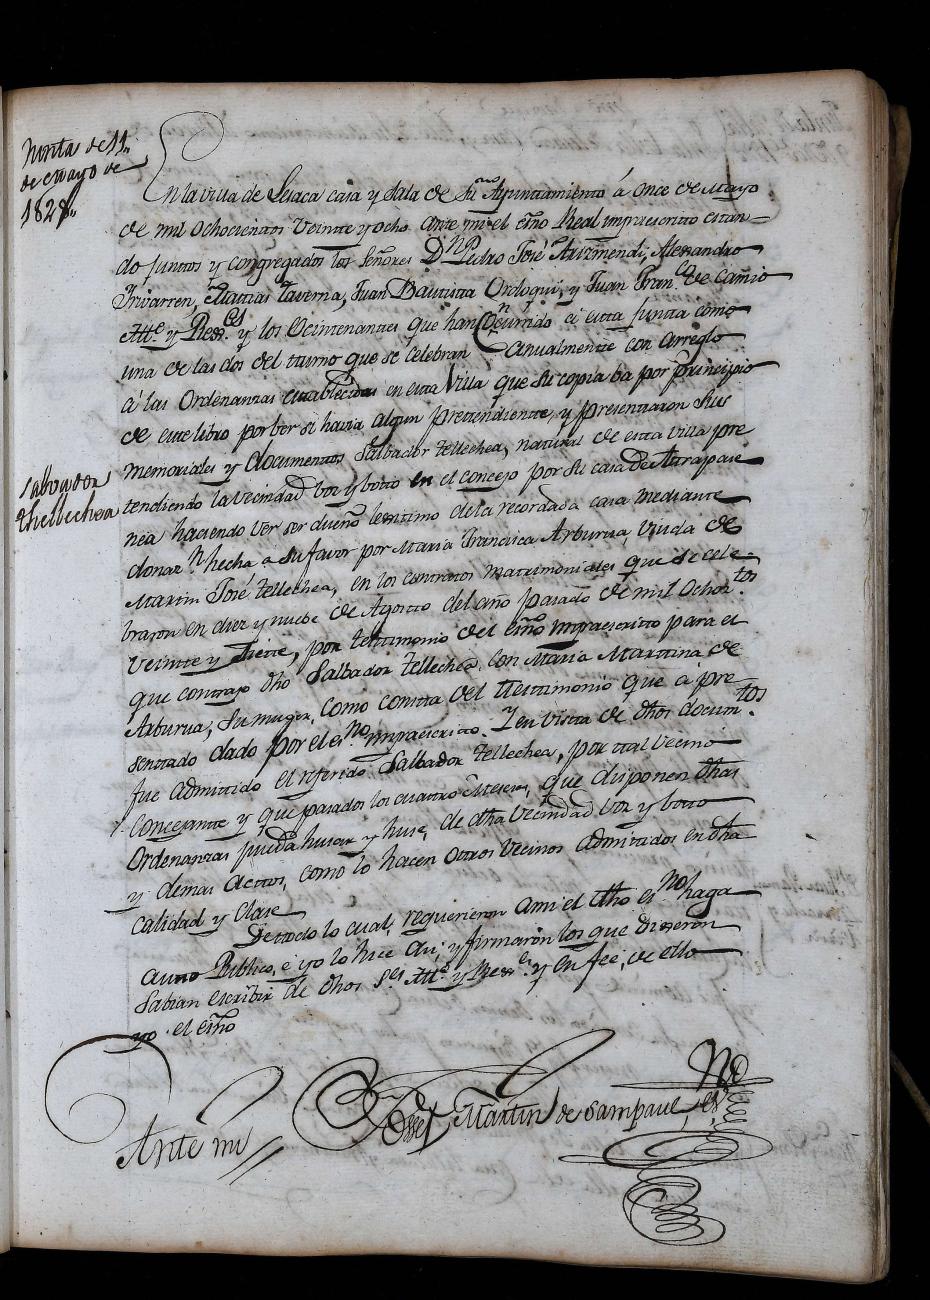 Junta de 11.
de Mayo de
1828,,
En la villa de Lesaca casa y sala de su Ayuntamiento á once de Mayo
de mil ochocientos veinte y ocho ante mi el esño Real impraescrito estan-
do juntos y congregados los Señores Dn Pedro José Arizmendi, Alexandro
Irivarren, Matias Taverna, Juan Bautista Ordoqui, y Juan Franco de Camio
Alle y Regres y los Vecintenantes que han Concurrido ci esta junta como
una de las dos del turno que se celebran anualmente con arreglo
á las Ordenanzas establecidas en esta Villa que su copia ba por principio
de este libro por ber si havia algun pretendiente, y presentaron sus
memoriales y documentos Salbador Tellechea, natural de esta villa pre
Salvador
Thellechea
tendiendo la vecindad voz y botto en el concejo por su casa de
nea haciendo ver ser dueño lexitimo de la recordada casa mediante
donazn hecha a su favor por Maria Francisca Arburua, Viuda de
Martin José Tellechea, en los contratos matrimoniales que se cele-
braron en diez y nuebe de Agosto del año pasado de mil ochoztos
Veinte y siete, por testimonio del esño impraescrito para el
que contrajo dho Salbador Tellechea, con Maria Martina de
Arburua, su muger, como consta del testimonio que á pre
sentado dado por el esno impraescrito. Y en vista de dhos documtos
fue admitido el referido Salbador Tellechea, por tal vecino
Concejante y que pasados los cuatro Meses, que disponen dhas
Ordenanzas pueda husar y huse, de dha Vecindad voz y botto
y demas actos, como lo hacen otros vecinos admitidos en dha
calidad y clase
De todo lo cual, requerieron ami el dho esno haga
auto Publico, é yo lo hice asi, y firmaron los que dixeron
Sabian escribir de dhos Ses Alle y Regres y en fee, de ello
yo el esño
Ante mi Josef Martin de Sampaul, esno